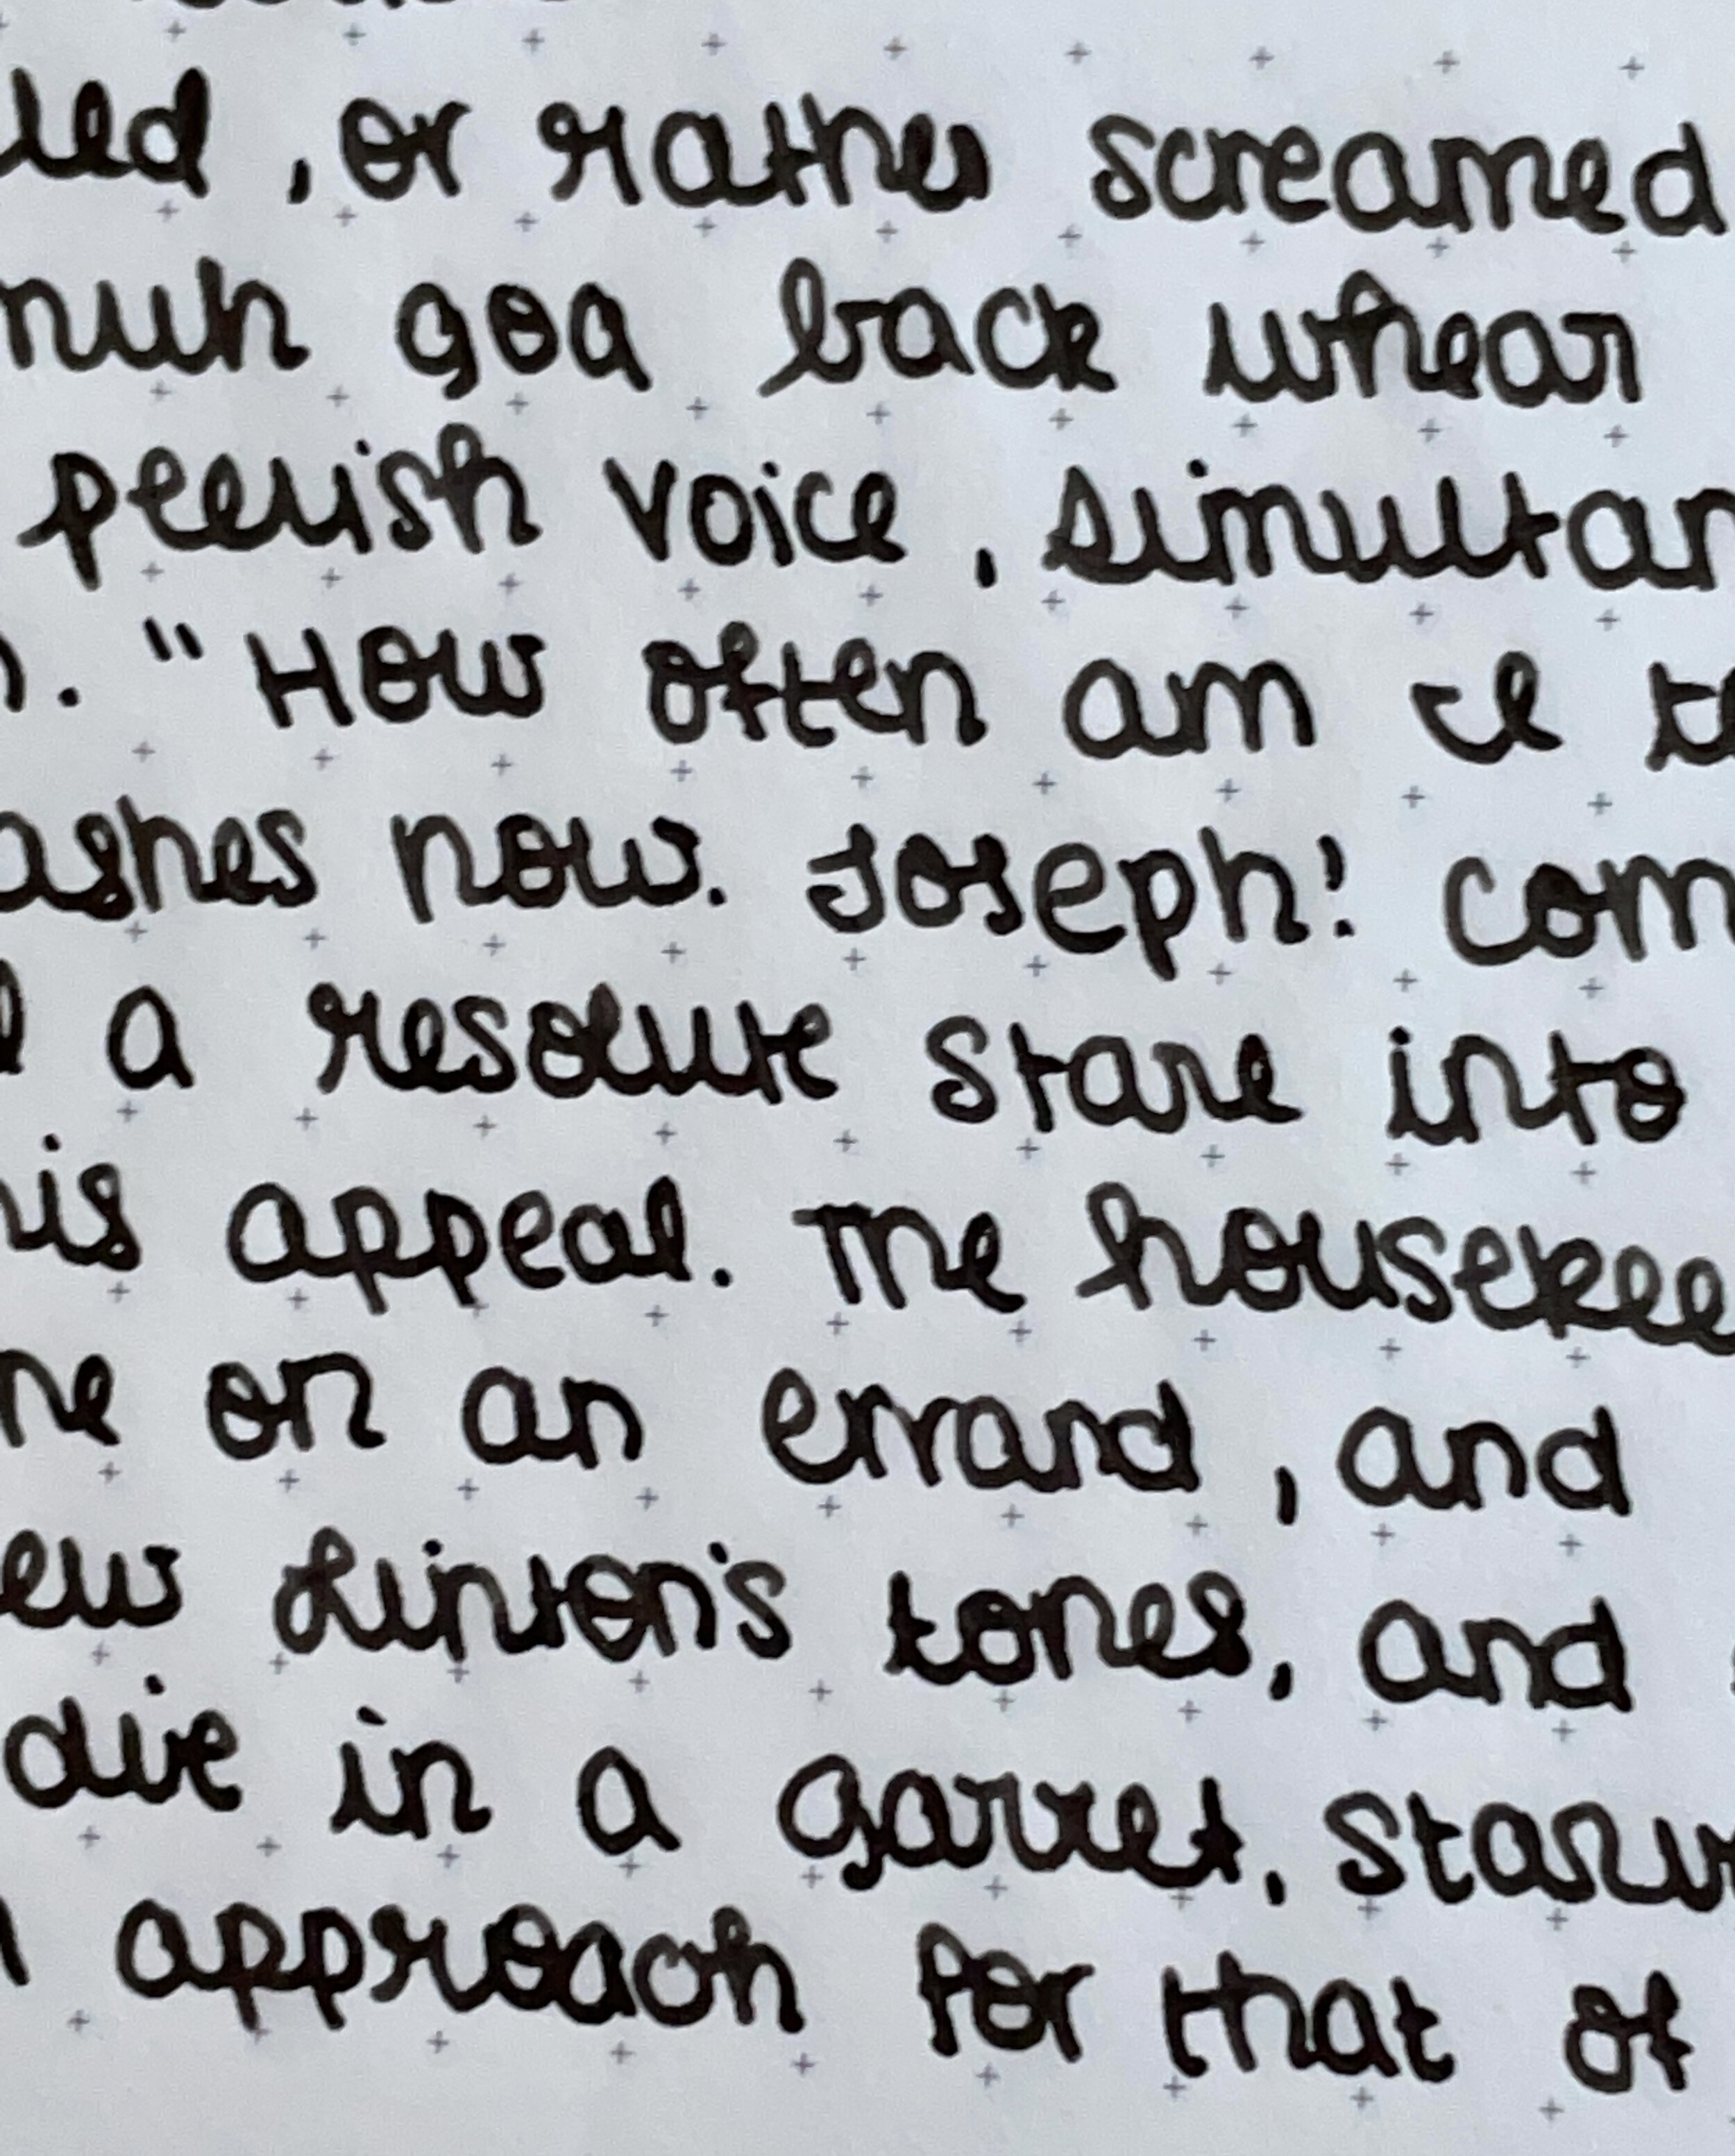 led , or rather screamed
nuh goa back whear
peevish voice , simultan
. "How often am I t
ashes now. Joseph! com
a resolute stare into
his appeal. The housekee
ne on an errand , and
ew Linton's tones, and
die in a garret, starv
approach for that of